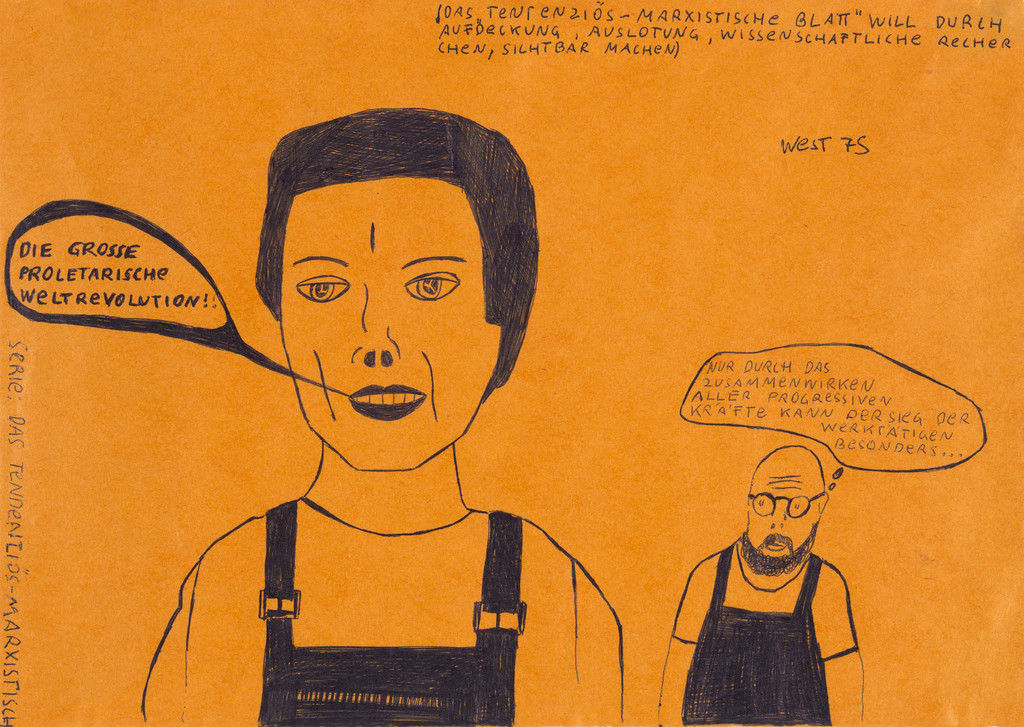 (DAS "TENTENZIÖS-MARXISTISCHE BLATT" WILL DURCH
AUFDECKUNG, AUSLOTUNG, WISSENSCHAFTLICHE RECHER
CHEN, SICHTBAR MACHEN)
WEST 75
DIE GROSSE
PROLETARISCHE
WELTREVOLUTION!!
NUR DURCH DAS
ZUSAMMENWIRKEN
ALLER PROGRESSIVEN
KRÄFTE KANN DER SIEG DER
WERKTÄTIGEN
BESONDERS...
SERIE: DAS TENDENZIÖS-MARXISTISCH